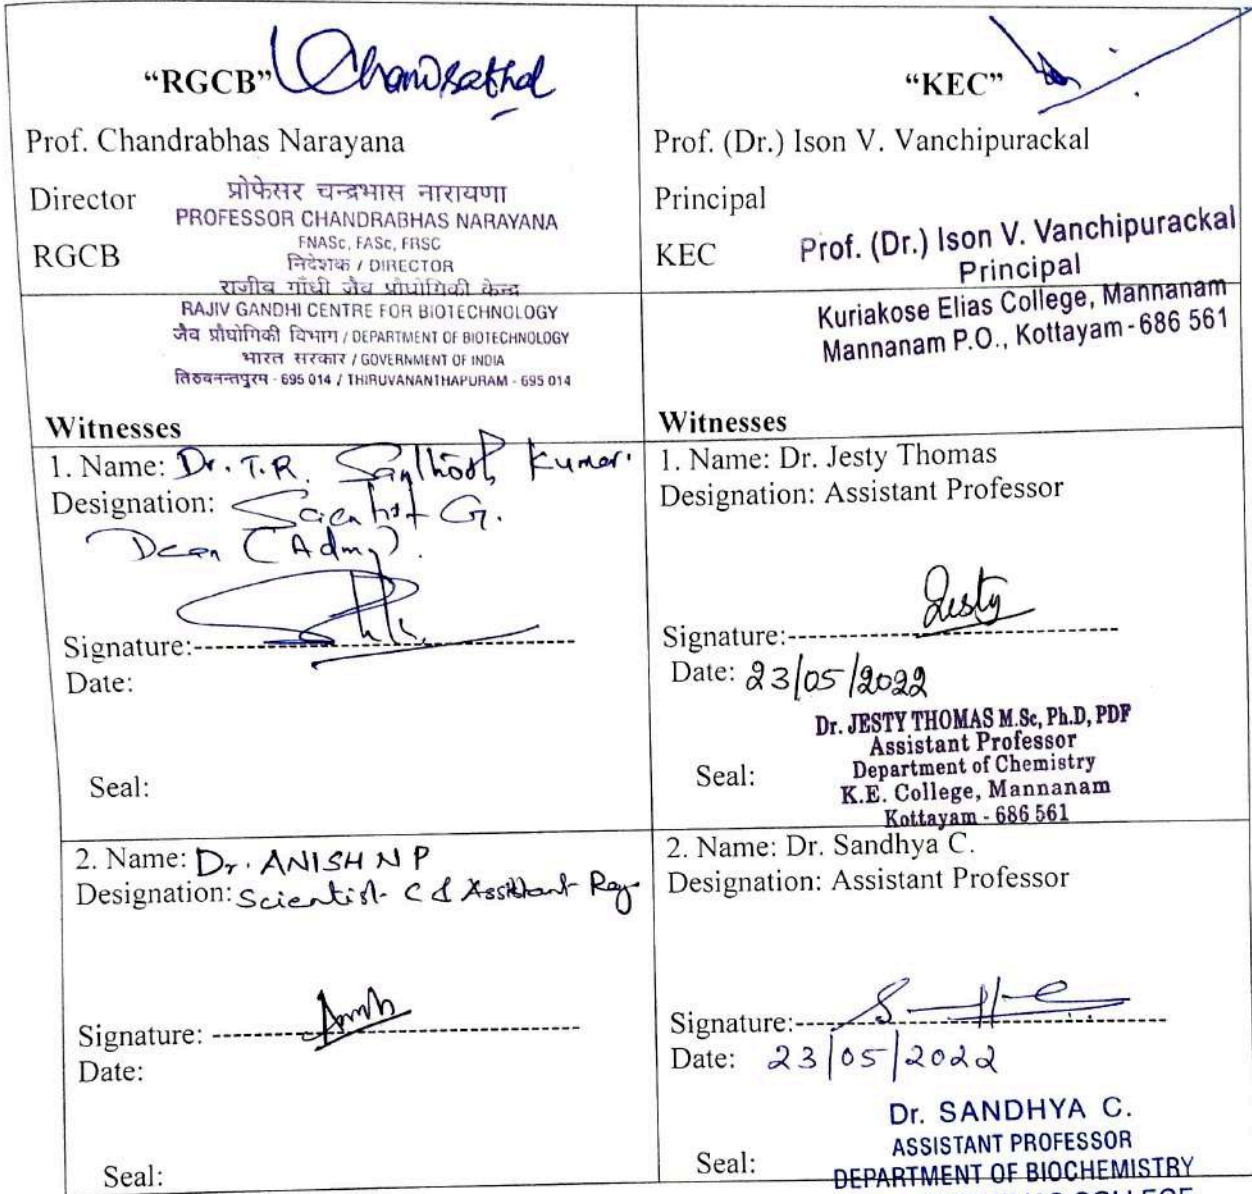 “RGCB” Chandrabhas
Prof. Chandrabhas Narayana
Director
RGCB
प्रोफेसर चन्द्रभास नारायणा
PROFESSOR CHANDRABHAS NARAYANA
FNASc, FASc, FRSC
निदेशक / DIRECTOR
राजीव गाँधी जैव प्रौद्योगिकी केन्द्र
RAJIV GANDHI CENTRE FOR BIOTECHNOLOGY
जैव प्रौद्योगिकी विभाग / DEPARTMENT OF BIOTECHNOLOGY
भारत सरकार / GOVERNMENT OF INDIA
तिरुवनन्तपुरम - 695 014 / THIRUVANANTHAPURAM - 695 014
Witnesses
1. Name: Dr. T.R. Santhosh Kumar.
Designation: Scientist G.
Dean (Admn).
Signature:
Date:
Seal:
2. Name: Dr. ANISH N P
Designation: Scientist C & Assistant Reg.
Signature:
Date:
Seal:
“KEC”
Prof. (Dr.) Ison V. Vanchipurackal
Principal
KEC
Prof. (Dr.) Ison V. Vanchipurackal
Principal
Kuriakose Elias College, Mannanam
Mannanam P.O., Kottayam - 686 561
Witnesses
1. Name: Dr. Jesty Thomas
Designation: Assistant Professor
Signature: Jesty
Date: 23/05/2022
Seal:
Dr. JESTY THOMAS M.Sc, Ph.D, PDF
Assistant Professor
Department of Chemistry
K.E. College, Mannanam
Kottayam - 686 561
2. Name: Dr. Sandhya C.
Designation: Assistant Professor
Signature:
Date: 23/05/2022
Seal:
Dr. SANDHYA C.
ASSISTANT PROFESSOR
DEPARTMENT OF BIOCHEMISTRY